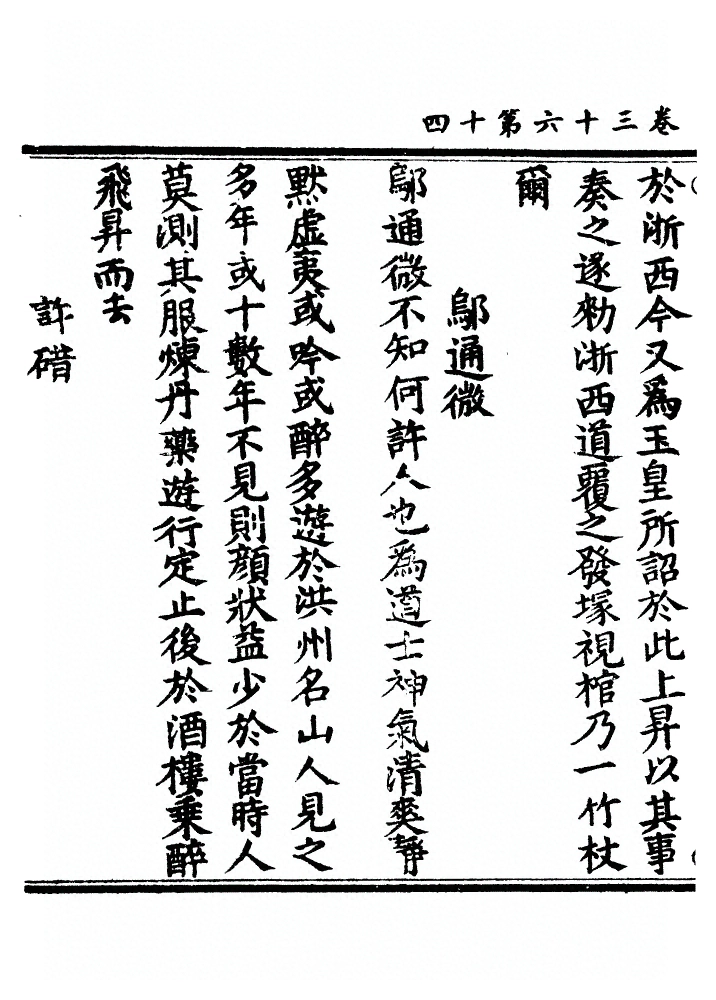 卷三十六第十四
於浙西今又爲玉皇所詔於此上昇以其事
奏之遂勑浙西道覆之發塚視棺乃一竹杖
爾
鄔通微
鄔通微不知何許人也爲道士神氣清爽靜
默虛夷或吟或醉多遊於洪州名山人見之
多年或十數年不見則顔狀益少於當時人
莫測其服煉丹藥遊行定止後於酒樓乘醉
飛昇而去
許碏